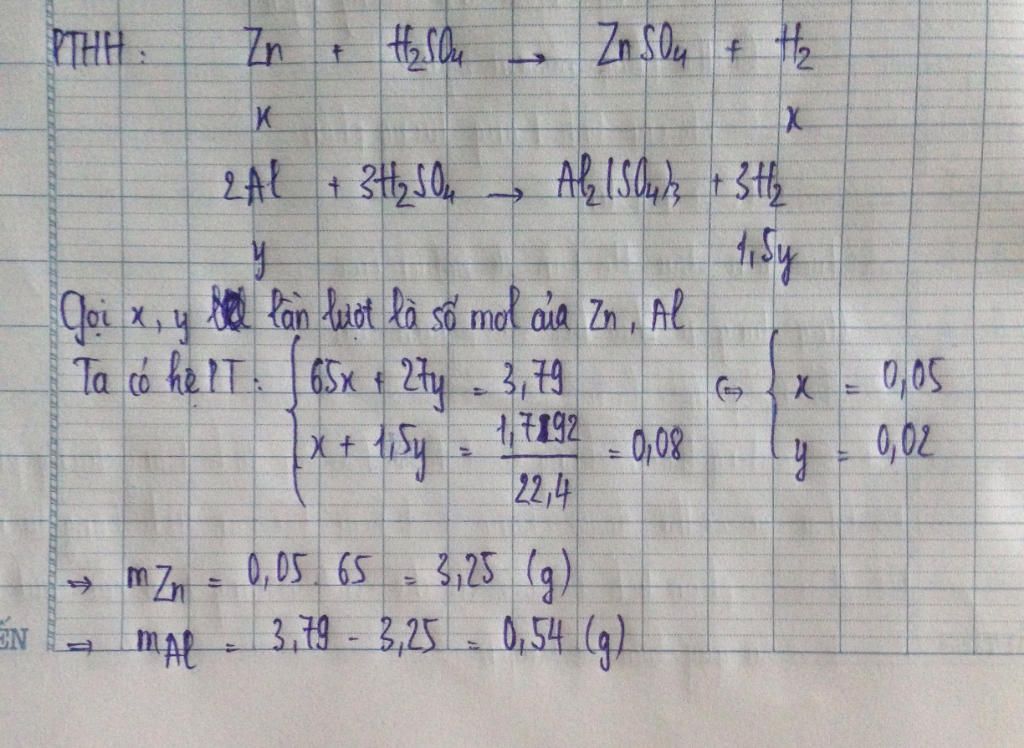 PTHH: Zn + H₂SO₄ → ZnSO₄ + H₂
x x
2Al + 3H₂SO₄ → Al₂(SO₄)₃ + 3H₂
y 1,5y
Gọi x, y lần lượt là số mol của Zn, Al
Ta có hệ PT: { 65x + 27y = 3,79 ⇔ { x = 0,05
x + 1,5y = 1,792 / 22,4 = 0,08 y = 0,02
⇒ mZn = 0,05 . 65 = 3,25 (g)
⇒ mAl = 3,79 - 3,25 = 0,54 (g)
ẾN